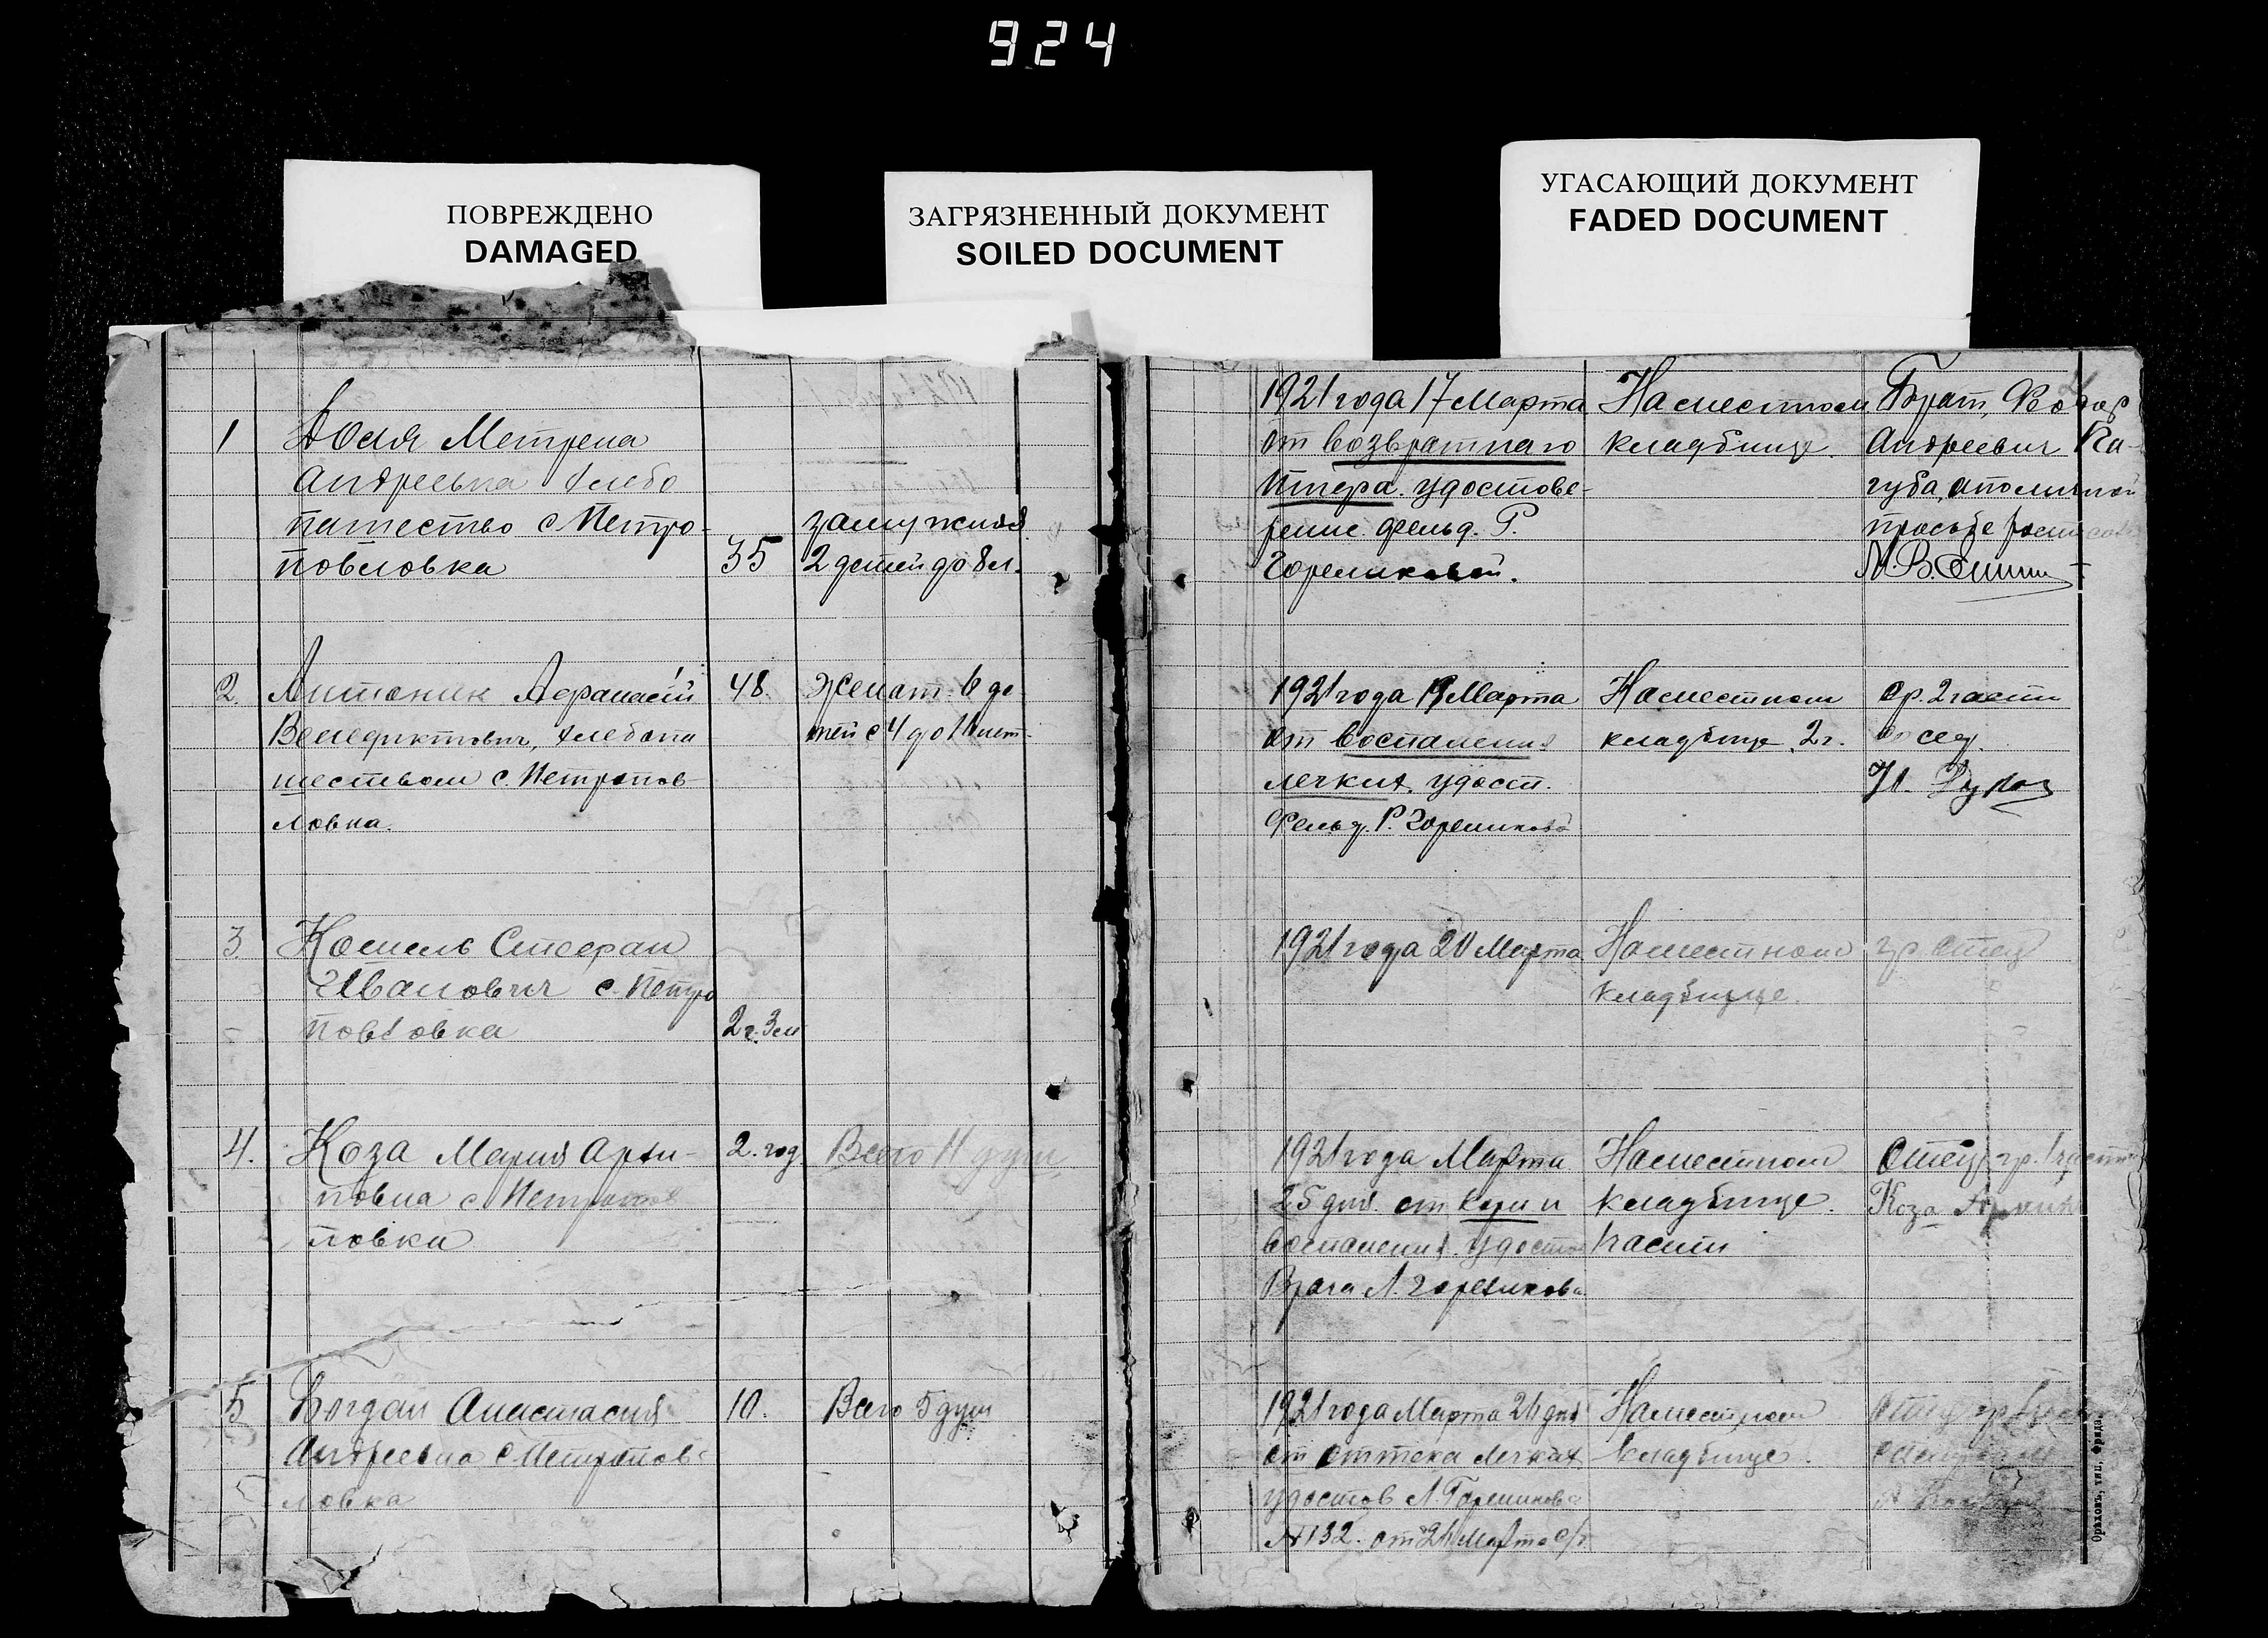 924
ПОВРЕЖДЕНО
DAMAGED
ЗАГРЯЗНЕННЫЙ ДОКУМЕНТ
SOILED DOCUMENT
УГАСАЮЩИЙ ДОКУМЕНТ
FADED DOCUMENT
1
Метрена
Андреевна хлебо
пашество с Петро-
повловка
35
замужняя
2 детей до 8 л.
1921 года 17 Марта
от возвратнаго
тифа. удостове-
рение фельд. Р.
Гореликовой.
На местном
кладбище.
Брат, Федор
Андреевич Па-
губа, а по личной
просьбе
2.
Антоник Афанасий
Венедиктович, хлебопа
шеством с. Петропов
ловка.
48.
Женат. 6 де
тей с 4 до лет
1921 года Марта
от воспаления
легких, удост.
Фельд. Р. Гореликова
На местном
кладбище 2 г.
гр. 2 части
сед.
3.
Кошель Стефан
Иванович с. Петро
повловка
2 г. 3 м
1921 года 20 Марта
На местном
кладбище.
гр. отец
4.
Коза Мария Архи-
повна с Петропов
ловка
2. год.
Всего 11 душ,
1921 года Марта
25 дня. от кори и
воспаления. удостов
Врача Л. Гореликова
На местном
кладбище.
1 части
Отец гр. 1 части
Коза
5
Богдан Анастасия
Андреевна с Петропов
ловка
10.
Всего 5 душ
1921 года Марта дня
от оттека легких
удостов Л Гореликова
№ 132. от Марта с/г
На местном
кладбище.
Отец гр.
Орѣховъ, тип. Фрида.